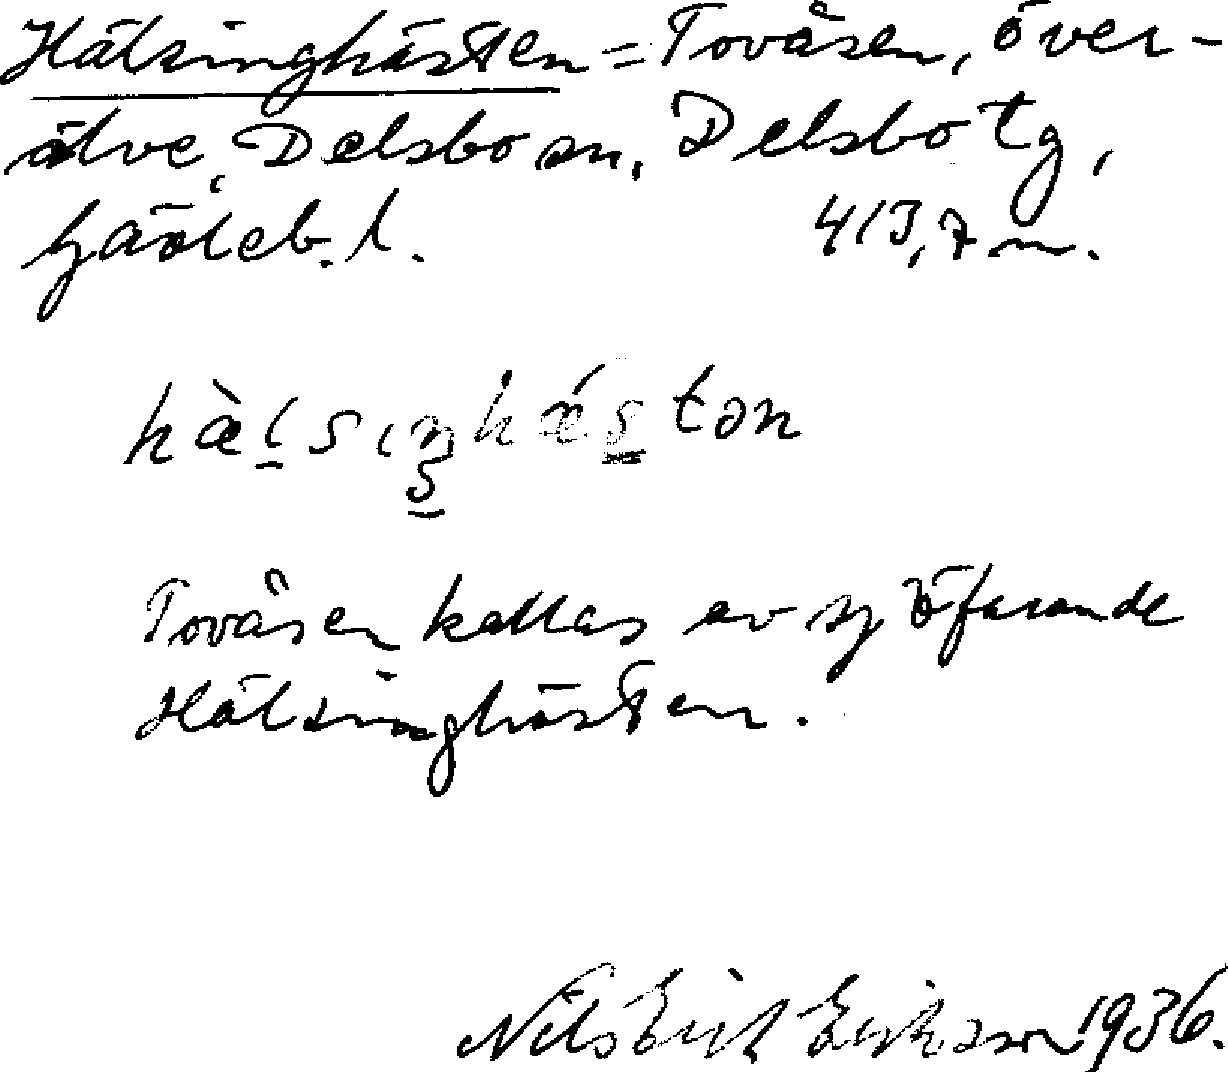 Hälsinghästen = Tovåsen, över-
älve, Delsbo sn, Delsbo tg,
Gävleb. l. 413,7 m.
hæ̀lsıŋhǽstən
Tovåsen kallas av sjöfarande
Hälsinghästen.
Nils Erik Eriksson 1936.